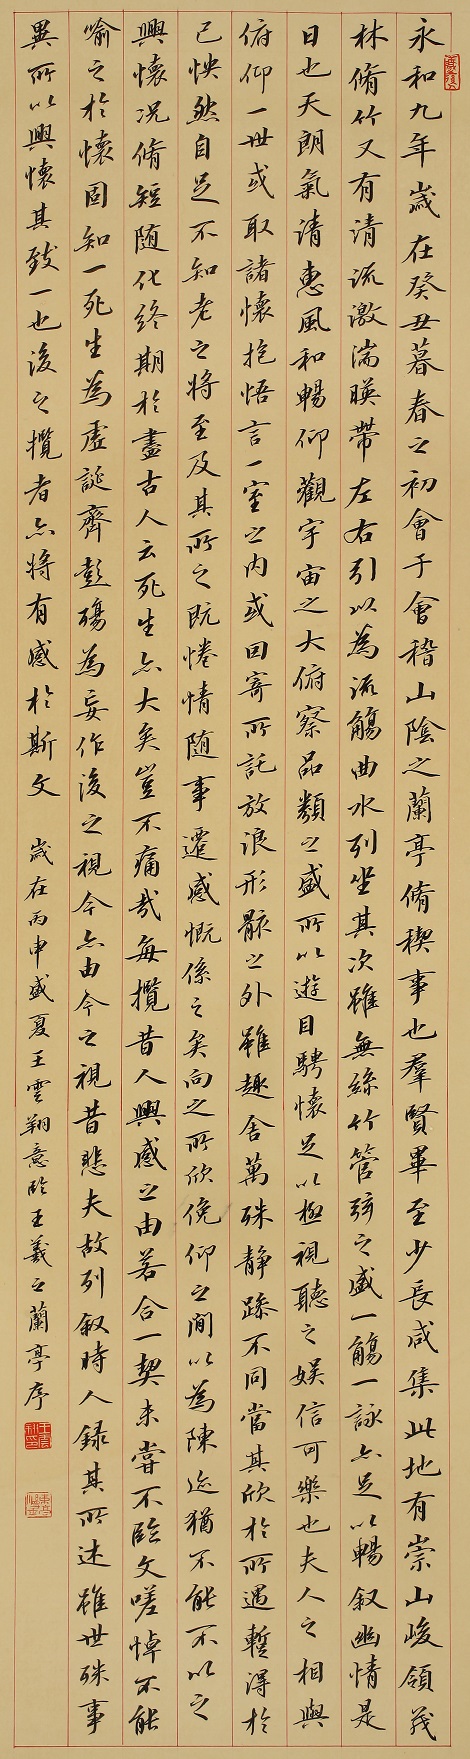 永和九年歲在癸丑暮春之初會于會稽山陰之蘭亭脩稧事也羣賢畢至少長咸集此地有崇山峻領茂
林脩竹又有清流激湍暎帶左右引以為流觴曲水列坐其次雖無絲竹管弦之盛一觴一詠亦足以暢叙幽情是
日也天朗氣清惠風和暢仰觀宇宙之大俯察品類之盛所以遊目騁懷足以極視聽之娛信可樂也夫人之相與
俯仰一世或取諸懷抱悟言一室之內或因寄所託放浪形骸之外雖趣舍萬殊静躁不同當其欣於所遇暫得於
己怏然自足不知老之將至及其所之既惓情随事遷感慨係之矣向之所欣俛仰之間以為陳迹猶不能不以之
興懷況脩短随化終期於盡古人云死生亦大矣豈不痛哉每攬昔人興感之由若合一契未嘗不臨文嗟悼不能
喻之於懷固知一死生為虛誕齊彭殤為妄作後之視今亦由今之視昔悲夫故列叙時人録其所述雖世殊事
異所以興懷其致一也後之攬者亦將有感於斯文 歲在丙申盛夏王雲翔意臨王羲之蘭亭序